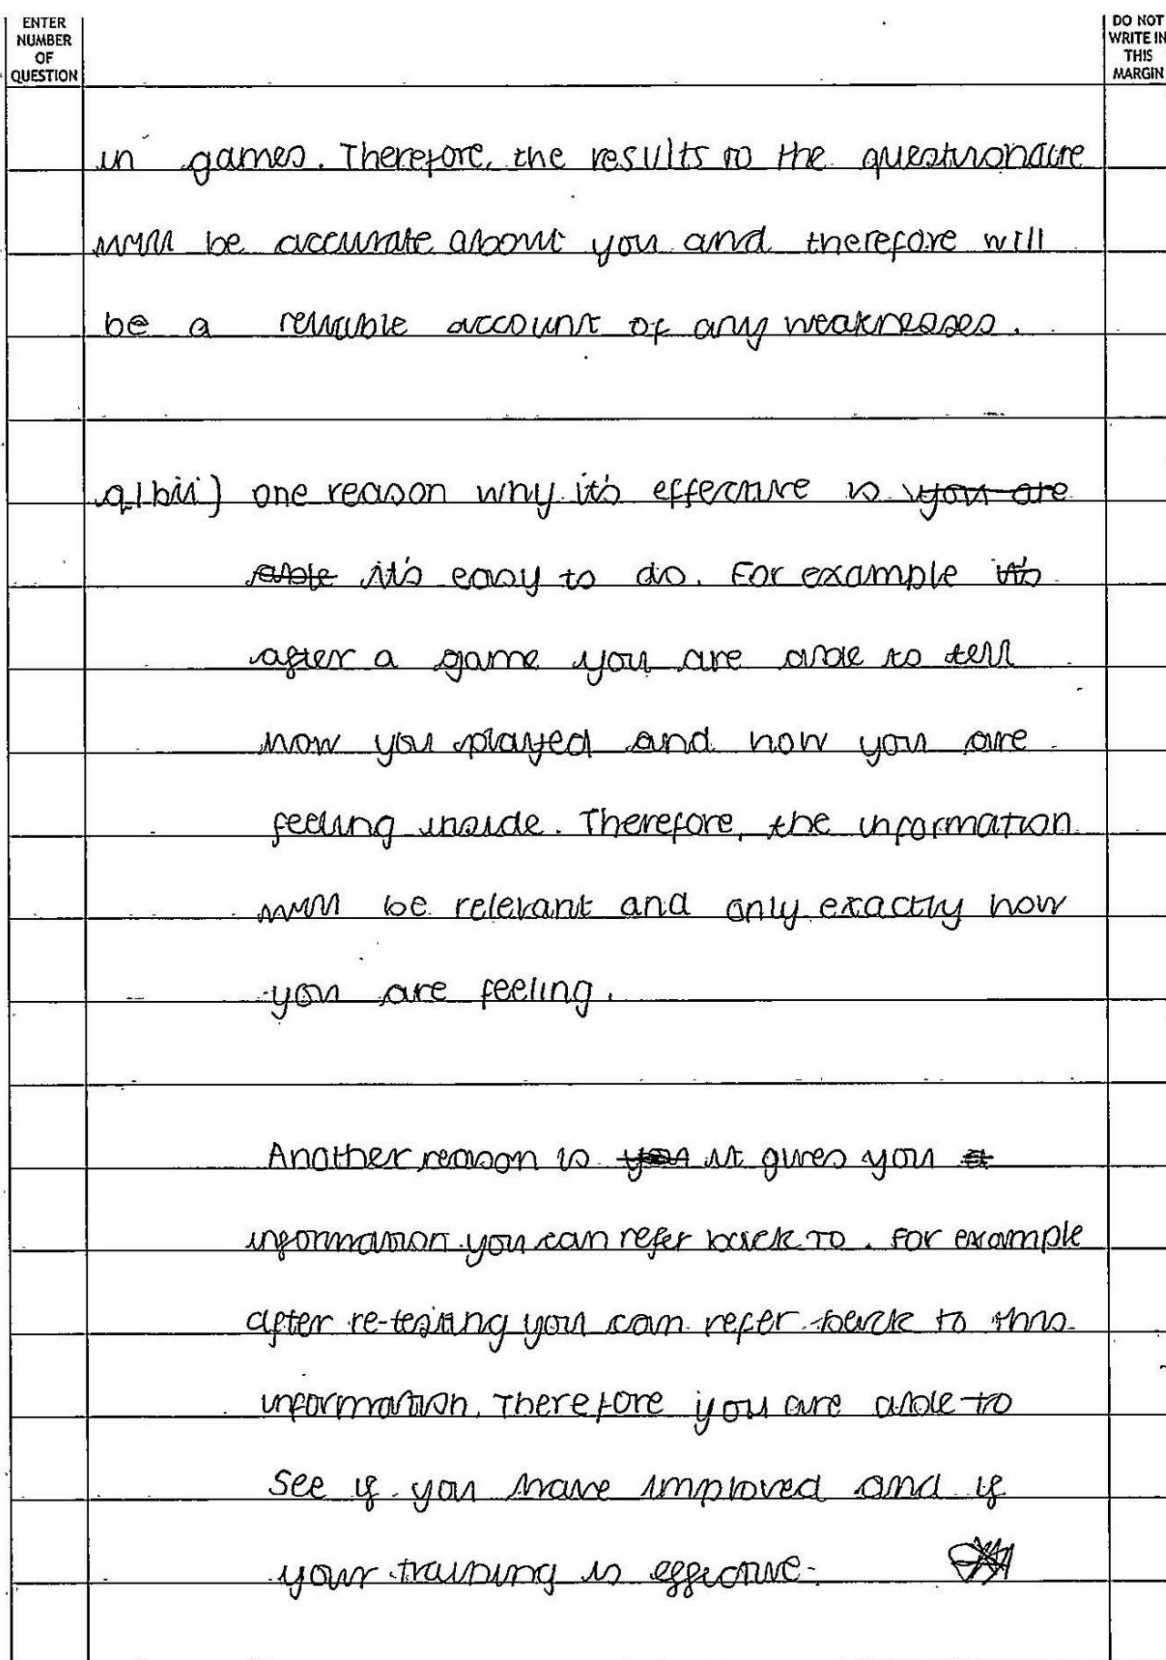 ENTER
NUMBER
OF
QUESTION
DO NOT
WRITE IN
THIS
MARGIN
in games. Therefore, the results to the questionaire
will be accurate about you and therefore will
be a reliable account of any weaknesses.
q1bii) one reason why it's effective is you are
able it's easy to do. For example it's
after a game you are able to tell
how you played and how you are
feeling inside. Therefore, the information
will be relevant and only exactly how
you are feeling.
Another reason is you it gives you a
information you can refer back to. For example
after re-testing you can refer back to this
information. Therefore you are able to
see if you have improved and if
your training is effective.